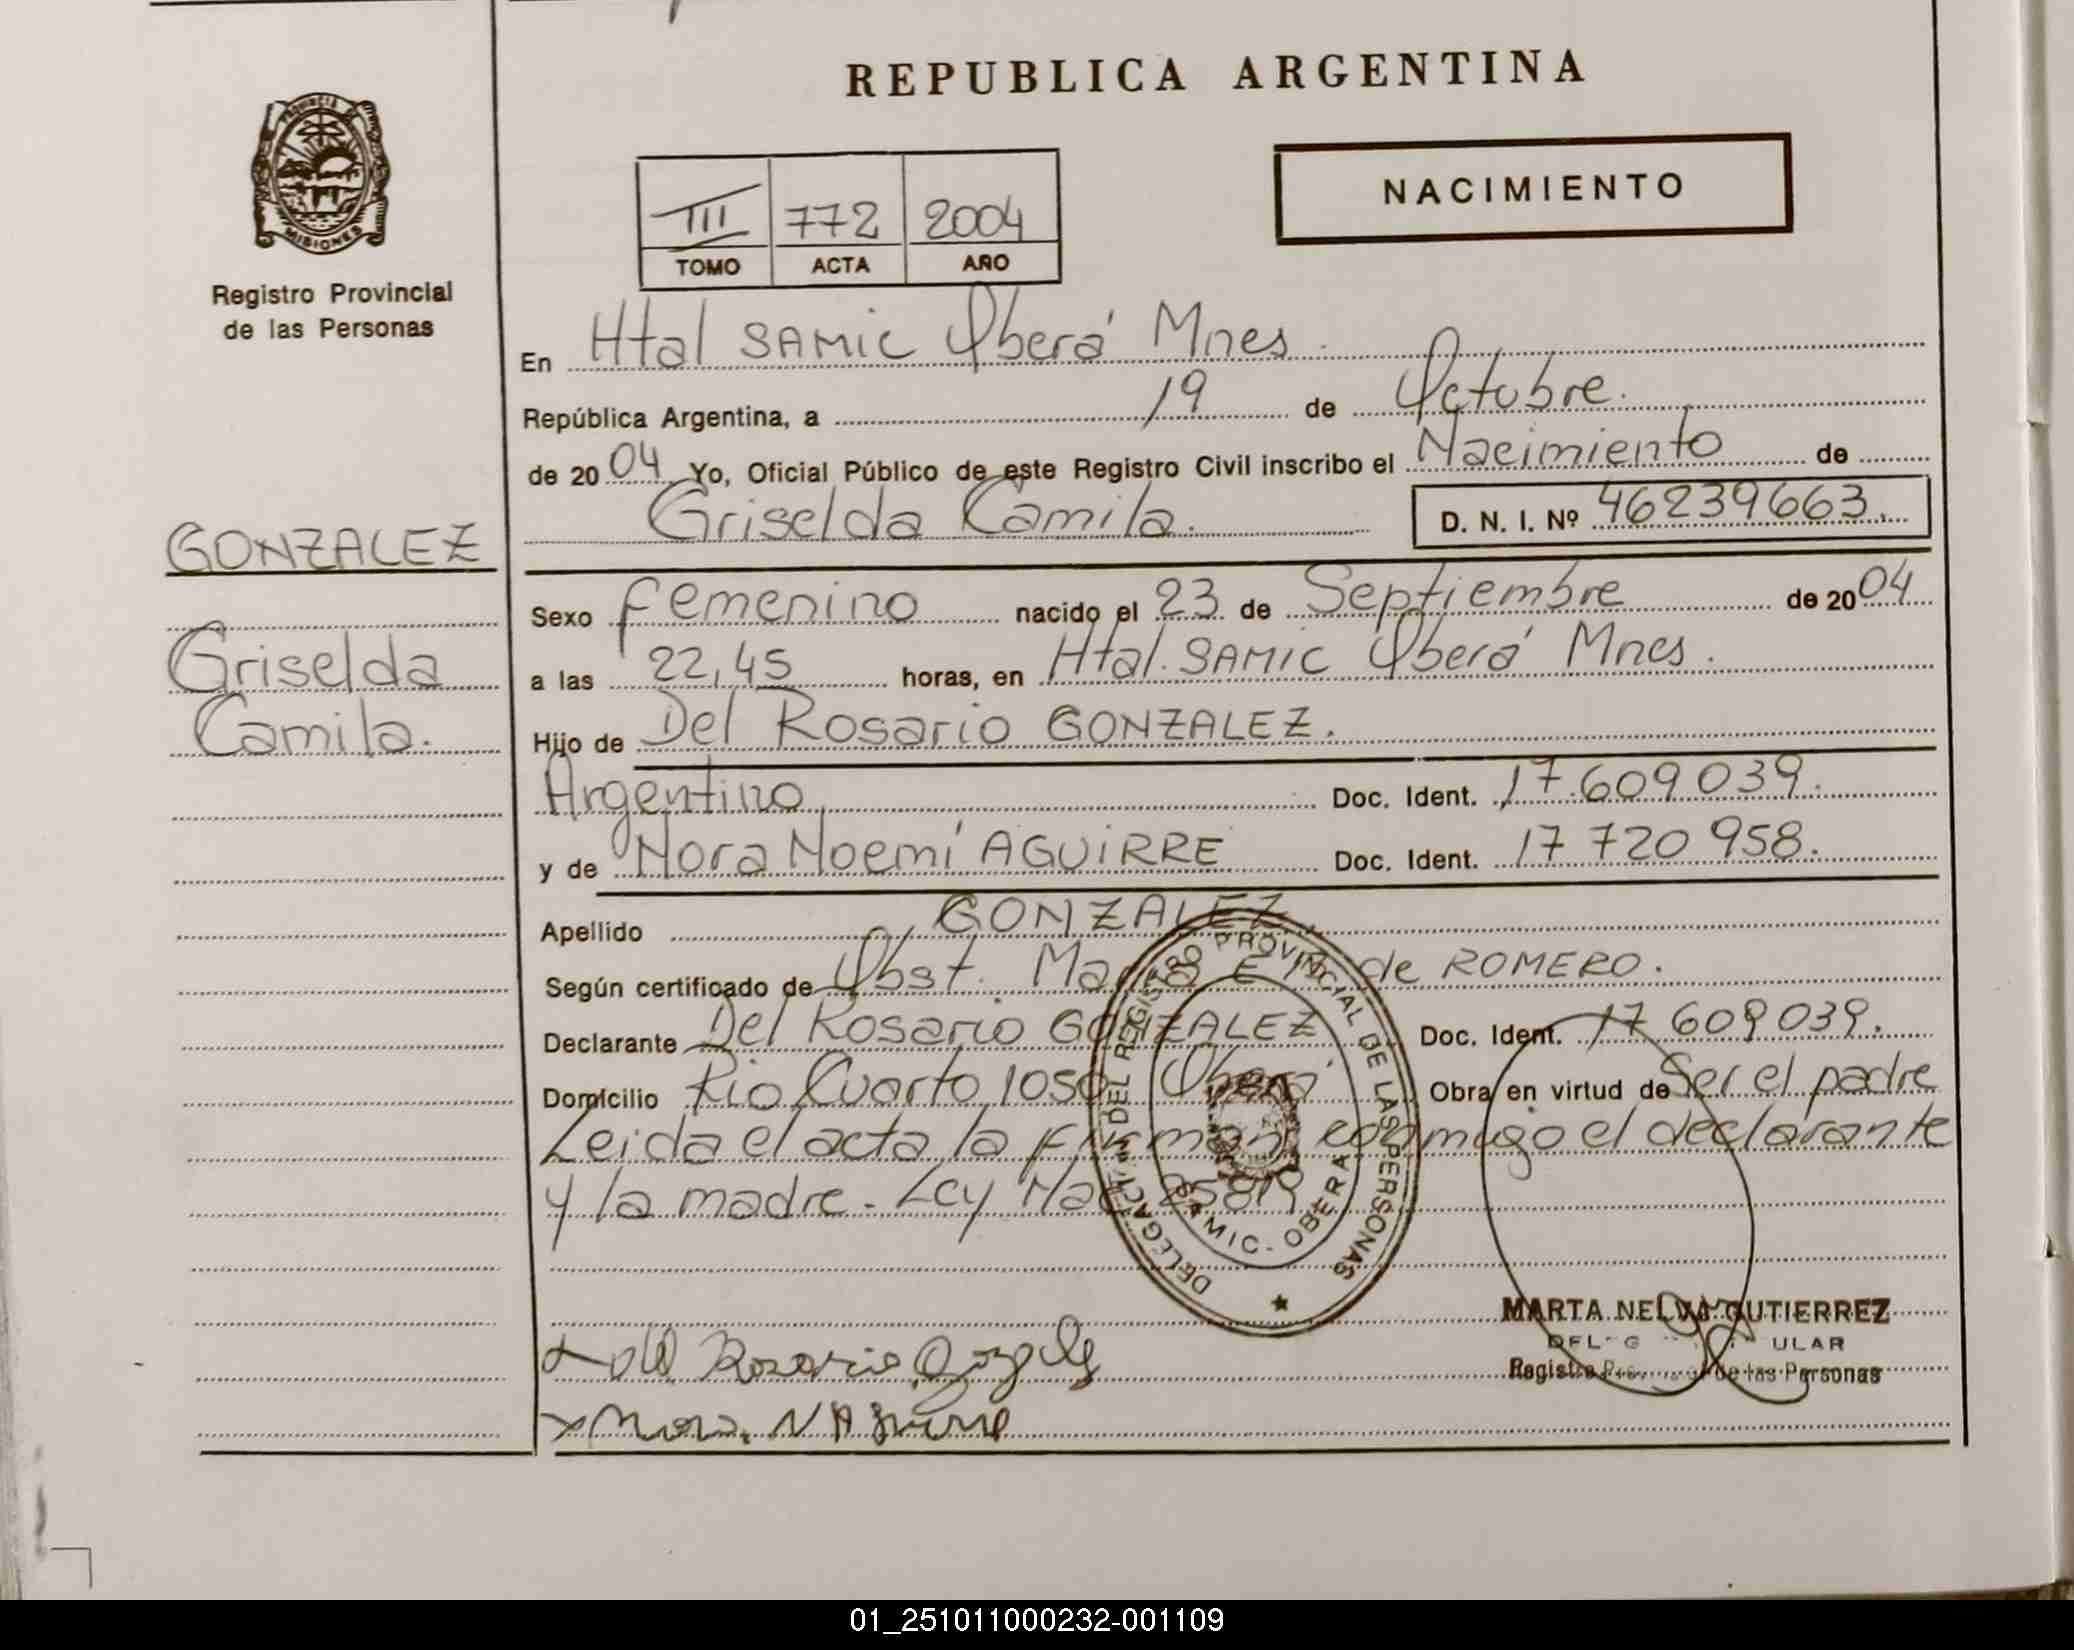 REPUBLICA ARGENTINA
PROVINCIA DE
MISIONES
Registro Provincial
de las Personas
NACIMIENTO
III 772 2004
TOMO ACTA AÑO
En Htal SAMIC Oberá Mnes.
República Argentina, a 19 de Octubre.
de 2004 Yo, Oficial Público de este Registro Civil inscribo el Nacimiento de
Griselda Camila.
D. N. I. Nº 46239663.
GONZALEZ
Griselda
Camila.
Sexo Femenino nacido el 23 de Septiembre de 2004
a las 22,45 horas, en Htal. SAMIC Oberá Mnes.
Hijo de Del Rosario GONZALEZ.
Argentino Doc. Ident. 17.609039.
y de Nora Noemí AGUIRRE Doc. Ident. 17 720 958.
Apellido GONZALEZ.
Según certificado de Obst. de ROMERO.
Declarante Del Rosario GONZALEZ Doc. Ident. 17 609 039.
Domicilio Rio Cuarto 1050 Oberá Obra en virtud de Ser el padre
Leida el acta la firman conmigo el declarante
y la madre. Ley Nac 25819
DELEGACION DEL REGISTRO PROVINCIAL DE LAS PERSONAS
SAMIC - OBERA
MARTA NELVA GUTIERREZ
Registro de las Personas
del Rosario Gonzalez
Nora. N Aguirre
01_251011000232-001109